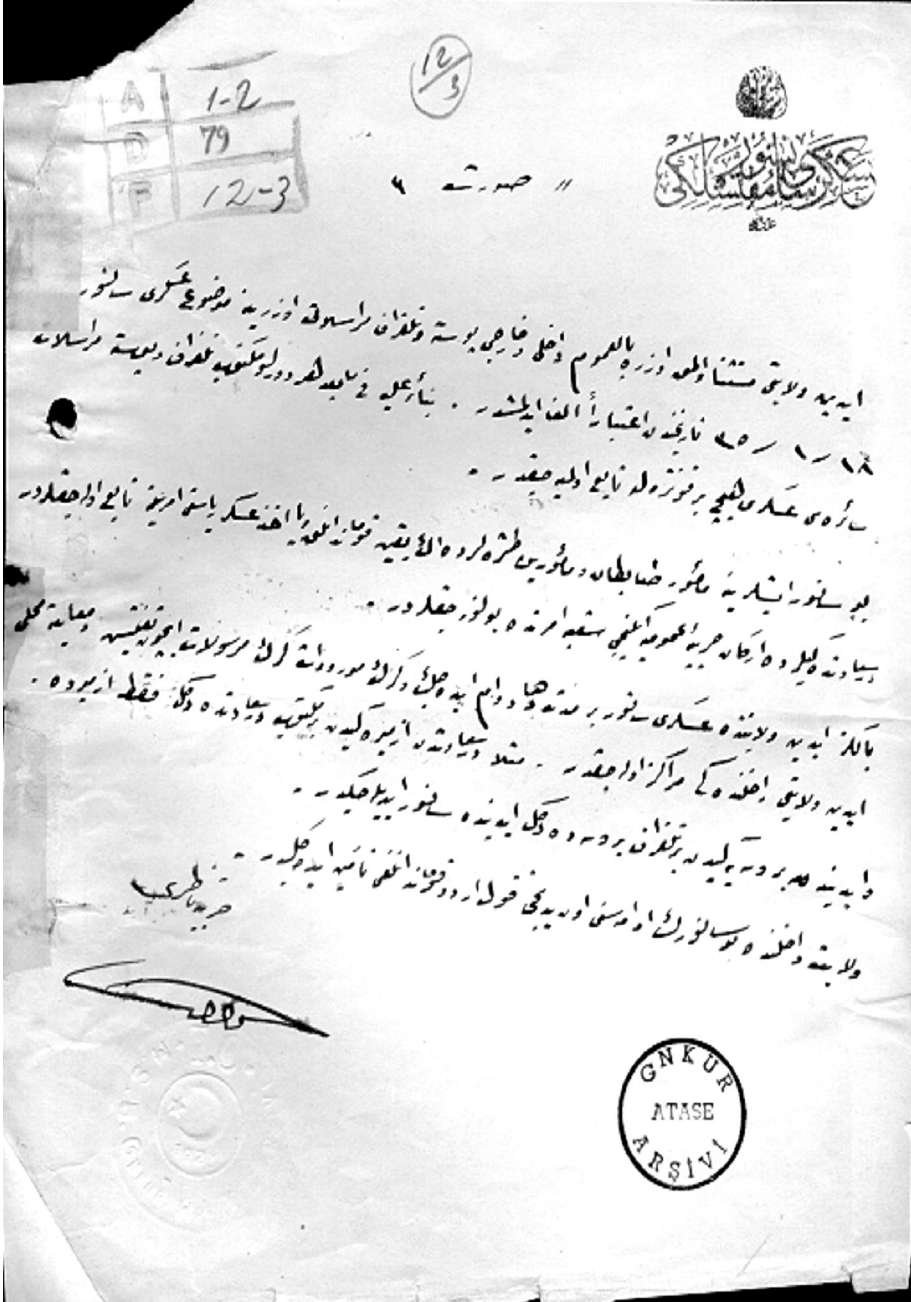 12
3
A 1-2
D 79
F 12-3
عسكرى سانسور مفتشلكى
صورت
ايدين ولايتى مستثنا اولمق اوزره بالعموم داخلى وخارجى پوسته وتلغراف مراسلاتى اوزرينه موضوع عسكرى سانسور
١٨ / ١ / ٣٥ تاريخندن اعتباراً الغا ايدلمشدر . بناءً عليه هر دورلو مكتوب تلغراف وپوسته مراسلات
سائره سى عسكرى هيچ بر قونتروله تابع اولميه جقدر .
بو سانسور ايشلرينه مأمور ضابطان ومأمورين طشره لرده اڭ يقين قوماندانلغڭ يا اخذ عسكر رياستى امرينه تابع اوله جقلردر
درسعادتده كيلر ده اركان حربيۀ عموميه ايكنجى شعبه امرنده بولنه جقلردر .
يالڭز ايدين ولايتنده عسكرى سانسور بر مدت دها دوام ايده جك وكرك موروداتڭ كرك مرسولاتڭ ايچون تفتيش ومعاينه محلى
ايدين ولايتى داخلنده كى مراكز اوله جقدر . مثلا درسعادتدن ازميره كيدن بر مكتوب درسعادتده دكل فقط ازميرده .
وايدين دن بروسه يه كيدن بر تلغراف بروسه ده دكل ايدينده سانسور ايديله جكدر .
ولايت داخلنده بو سانسورڭ اداره سنى اون يدنجى قول اوردو قوماندانلغى تأمين ايده جكدر .
حربيه ناظرى
GNKUR
ATASE
ARŞİVİ